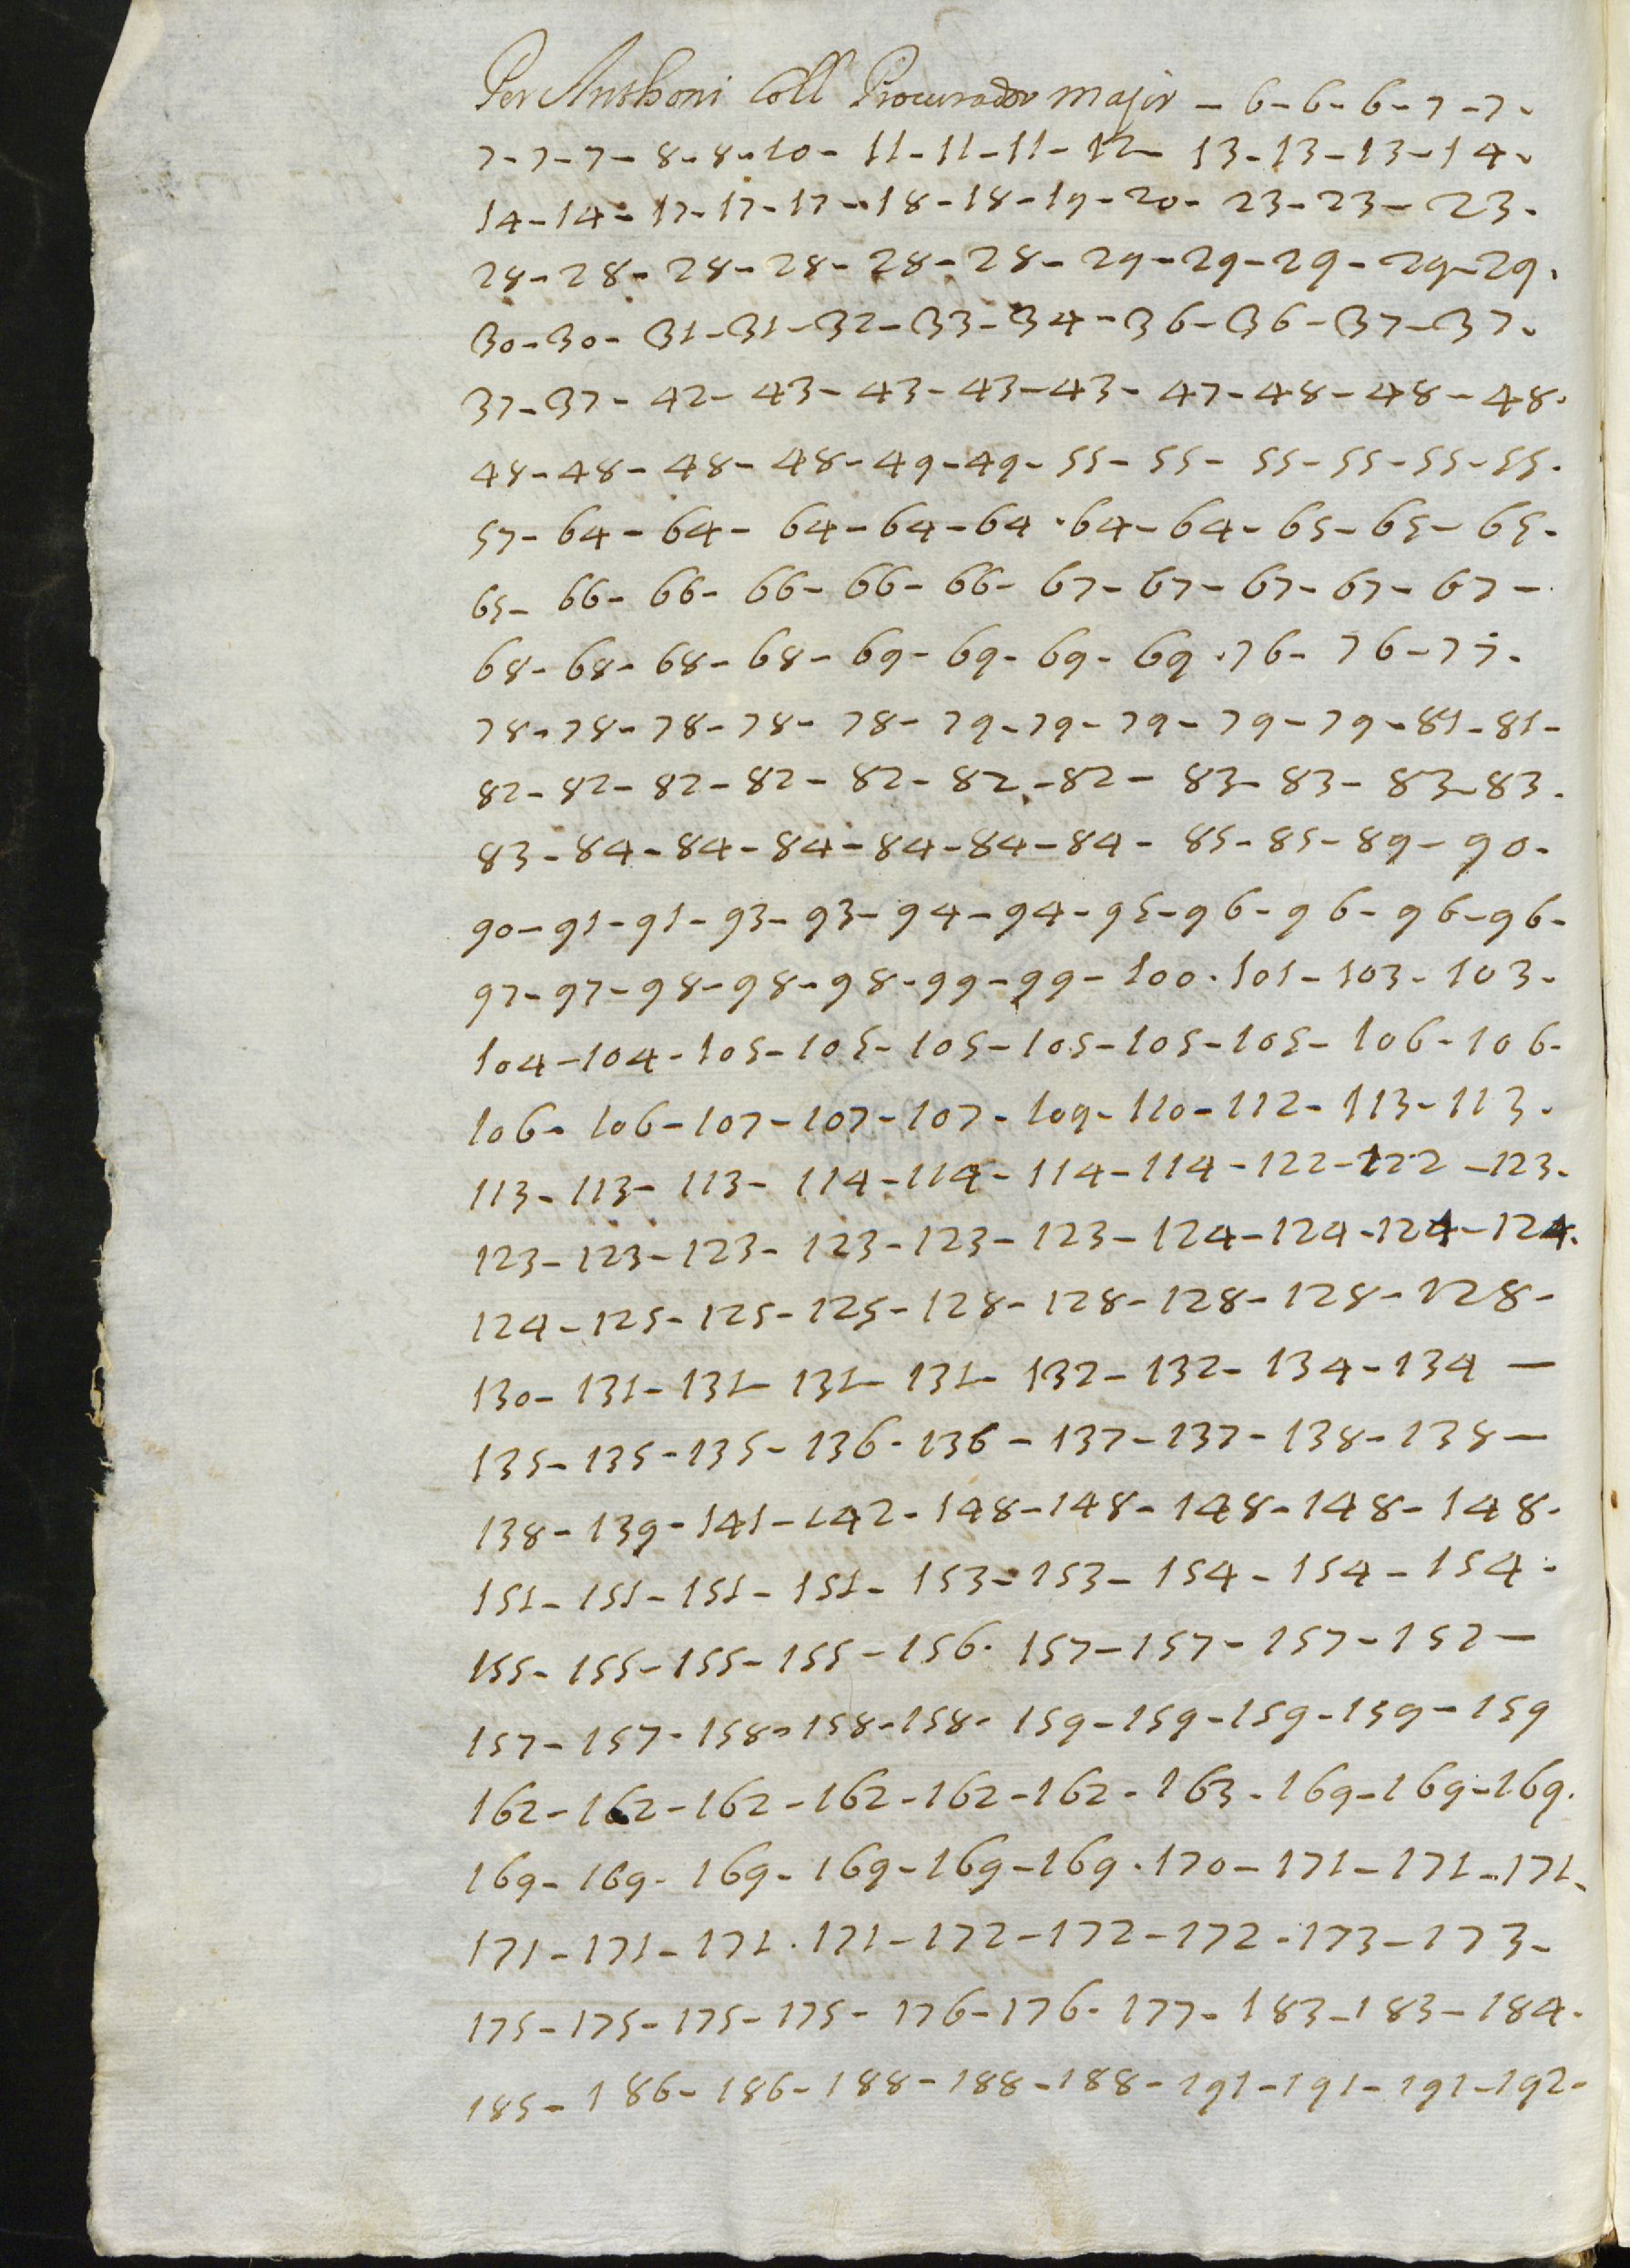 Per Anthoni Coll Procurador major - 6 - 6 - 6 - 7 - 7 -
7 - 7 - 7 - 8 - 8 - 10 - 11 - 11 - 11 - 12 - 13 - 13 - 13 - 14 -
14 - 14 - 17 - 17 - 17 - 18 - 18 - 19 - 20 - 23 - 23 - 23 -
28 - 28 - 28 - 28 - 28 - 28 - 29 - 29 - 29 - 29 - 29 .
30 - 30 - 31 - 31 - 32 - 33 - 34 - 36 - 36 - 37 - 37 .
37 - 37 - 42 - 43 - 43 - 43 - 43 - 47 - 48 - 48 - 48 .
48 - 48 - 48 - 48 - 49 - 49 - 55 - 55 - 55 - 55 - 55 - 55 .
57 - 64 - 64 - 64 - 64 - 64 . 64 - 64 - 65 - 65 - 65 -
65 - 66 - 66 - 66 - 66 - 66 - 67 - 67 - 67 - 67 - 67 -
68 - 68 - 68 - 68 - 69 - 69 - 69 - 69 . 76 - 76 - 77 .
78 - 78 - 78 - 78 - 78 - 79 - 79 - 79 - 79 - 79 - 81 - 81 -
82 - 82 - 82 - 82 - 82 - 82 - 82 - 83 - 83 - 83 - 83 .
83 - 84 - 84 - 84 - 84 - 84 - 84 - 85 - 85 - 89 - 90 -
90 - 91 - 91 - 93 - 93 - 94 - 94 - 95 - 96 - 96 - 96 - 96 -
97 - 97 - 98 - 98 - 98 - 99 - 99 - 100 . 101 - 103 - 103 -
104 - 104 - 105 - 105 - 105 - 105 - 105 - 105 - 106 - 106 -
106 - 106 - 107 - 107 - 107 - 109 - 110 - 112 - 113 - 113 .
113 - 113 - 113 - 114 - 114 - 114 - 114 - 122 - 122 - 123 .
123 - 123 - 123 - 123 - 123 - 123 - 124 - 124 - 124 - 124 .
124 - 125 - 125 - 125 - 128 - 128 - 128 - 128 - 128 -
130 - 131 - 131 - 131 - 131 - 132 - 132 - 134 - 134 -
135 - 135 - 135 - 136 - 136 - 137 - 137 - 138 - 138 -
138 - 139 - 141 - 142 - 148 - 148 - 148 - 148 - 148 -
151 - 151 - 151 - 151 - 153 - 153 - 154 - 154 - 154 -
155 - 155 - 155 - 155 - 156 . 157 - 157 - 157 - 157 -
157 - 157 - 158 - 158 - 158 - 159 - 159 - 159 - 159 - 159
162 - 162 - 162 - 162 - 162 - 162 - 163 - 169 - 169 - 169 .
169 - 169 - 169 - 169 - 169 - 169 . 170 - 171 - 171 - 171 -
171 - 171 - 171 . 171 - 172 - 172 - 172 - 173 - 173 -
175 - 175 - 175 - 175 - 176 - 176 - 177 - 183 - 183 - 184 -
185 - 186 - 186 - 188 - 188 - 188 - 191 - 191 - 191 - 192 -